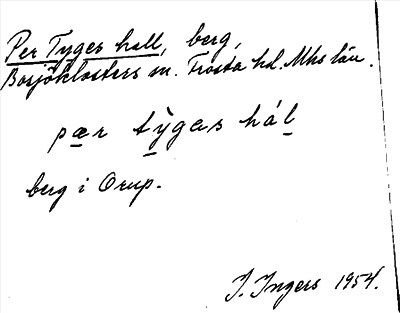 Per Tyges hall, berg,
Bosjöklosters sn. Frosta hd. Mhs län.
pær tỳgas hál
berg i Orup.
I. Ingers 1954.